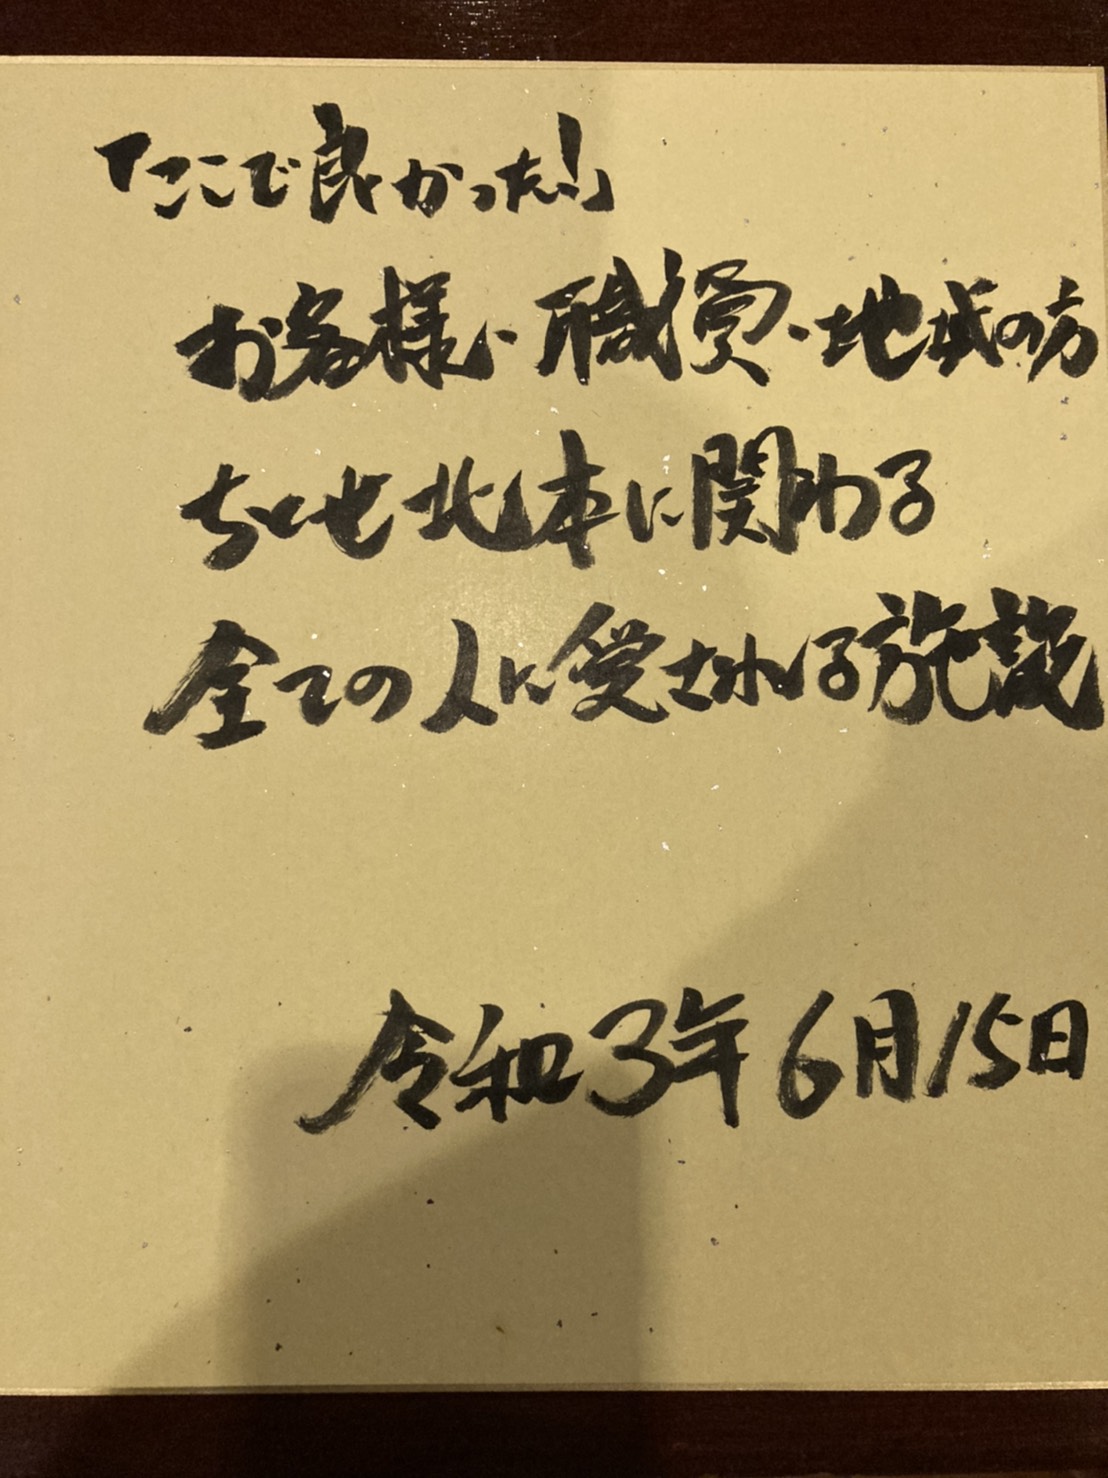 「ここで良かった!」
お客様・職員・地域の方
ちとせ北本に関わる
全ての人に愛される施設
令和3年6月15日